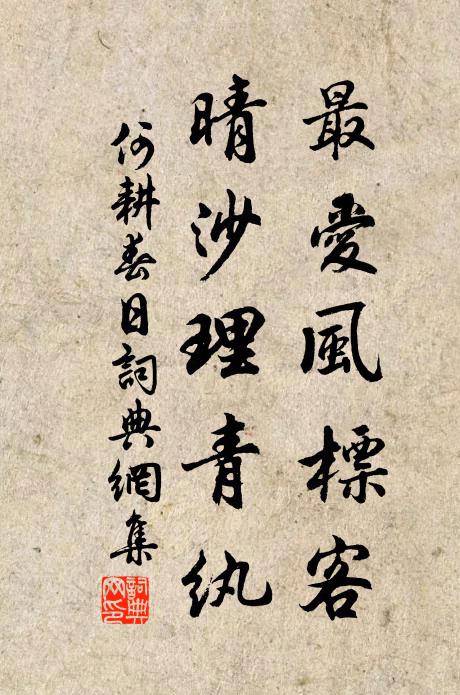 最愛風標客
晴沙理青紈
何耕春日詞典網集
詞典網印